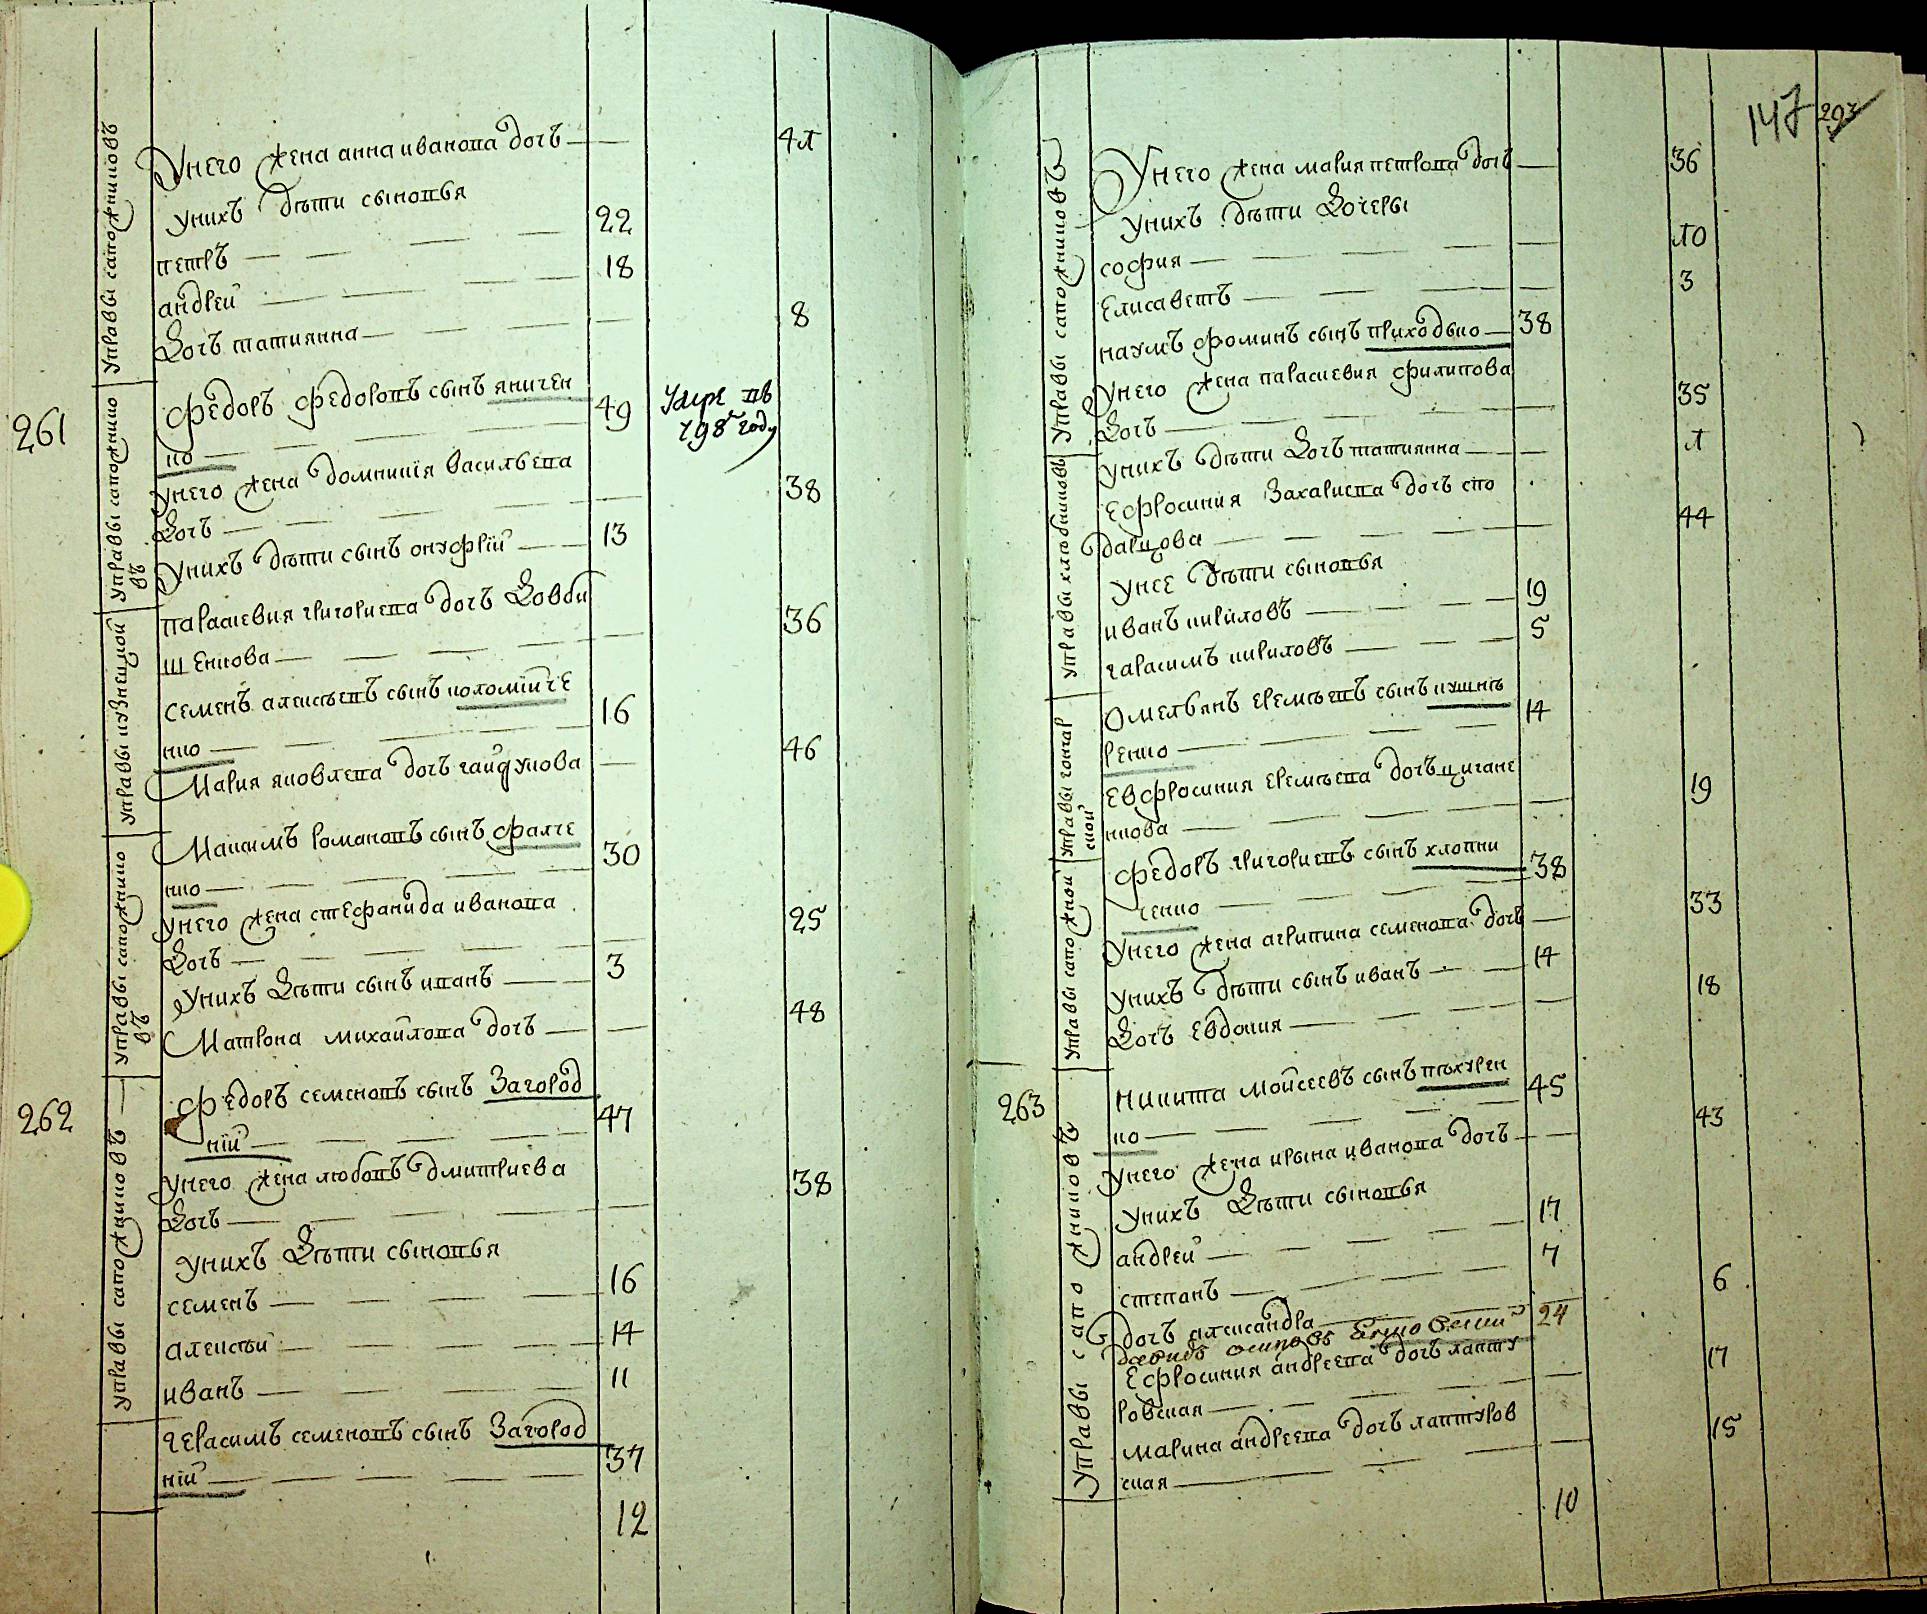 Управы сапожниковъ
Унего жена анна иванова дочь 41
Унихъ дѣти сыновья
петръ 22
андрей 18
Дочь татиянна 8
261
Управы сапожнико
въ
Федоръ федоровъ сынъ яничен
ко 49
Умре въ
798 году
Унего жена домникія васильева
Дочь 38
Унихъ дѣти сынъ онуфрій 13
Управы кузнецкой
параскевия григориева дочь Довби
щенкова 36
Семенъ алексѣевъ сынъ коломійче
нко 16
Мария яковлева дочь гайдукова 46
Управы сапожнико
въ
Максимъ романовъ сынъ фалче
нко 30
Унего жена стефанида иванова
Дочь 25
Унихъ Дѣти сынъ иванъ 3
Матрона михайлова дочь 48
262
Управы сапожниковъ
Федоръ семеновъ сынъ Загород
ній 47
Унего жена любовь дмитриева
Дочь 38
Унихъ Дѣти сыновья
семенъ 16
алексѣй 14
иванъ 11
герасимъ семеновъ сынъ Загород
ній 37
12
147 293
Управы сапожниковъ
Унего жена мария петрова дочь 36
Унихъ дѣти Дочеры
софия 10
Елисаветъ 3
наумъ фоминъ сынъ приходько 38
Унего жена параскевия филипова
Дочь 35
Унихъ дѣти Дочь татиянна 1
Управы хлѣбниковъ
Ефросиния Захариева дочь ско
дарцова 44
Унее дѣти сыновья
иванъ кириловъ 19
гарасимъ кириловъ 5
Управы гончар
ской
Омельянъ еремѣевъ сынъ кушнѣ
ренко 14
Евфросиния еремѣева дочь цигане
нкова 19
Управы сапожной
Федоръ григориевъ сынъ хлопни
ченко 38
Унего жена агрипина семенова дочь 33
Унихъ дѣти сынъ иванъ 14
Дочь Евдокия 18
263
Управы сапожниковъ
Никита мойсеевъ сынъ пѣхурен
ко 45
Унего жена ирына иванова дочь 43
Унихъ Дѣти сыновья
андрей 17
степанъ 7
дочь александра 6
давидъ осиповъ 24
Ефросиния андреева дочь лапту
ровская 17
марина андреева дочь лаптуров
ская 15
10